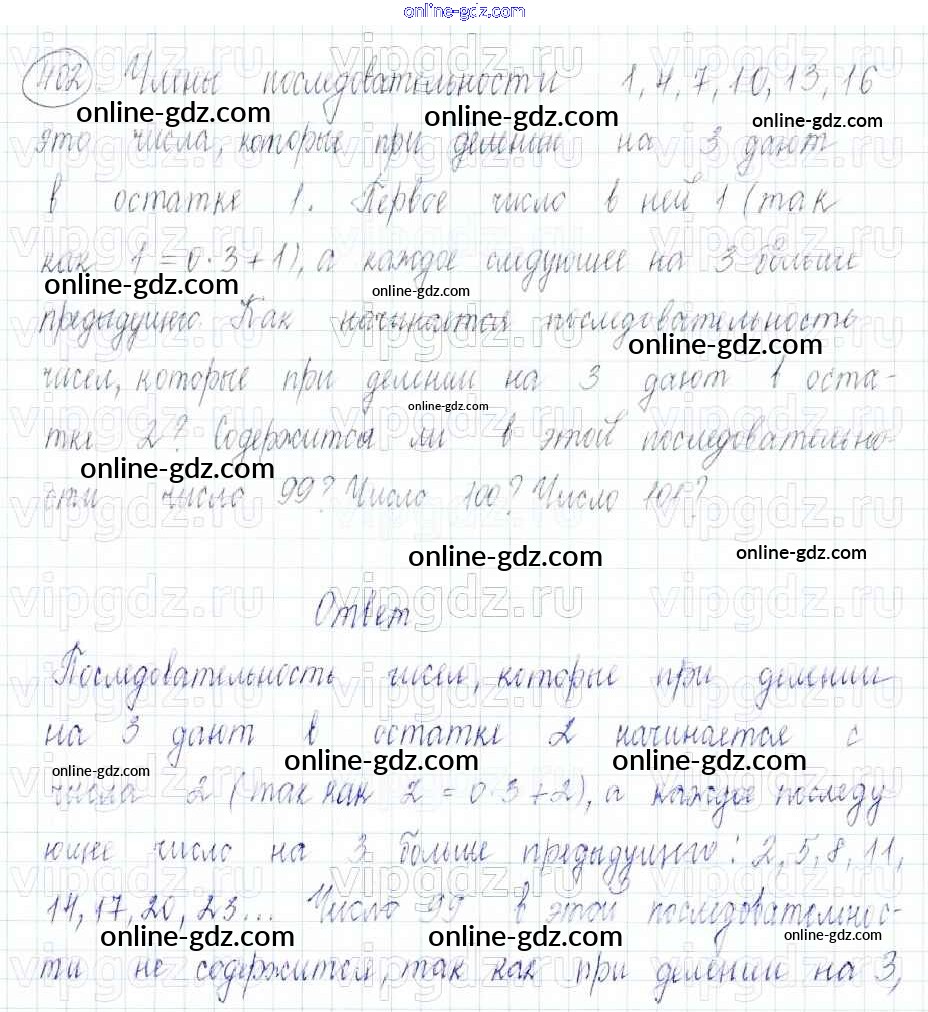 online-gdz.com
402 Члены последовательности 1, 4, 7, 10, 13, 16
online-gdz.com online-gdz.com online-gdz.com
это числа, которые при делении на 3 дают
в остатке 1. Первое число в ней 1 (так
как 1 = 0·3+1), а каждое следующее на 3 больше
online-gdz.com online-gdz.com
предыдущего. Как начинается последовательность
online-gdz.com
чисел, которые при делении на 3 дают в оста-
online-gdz.com
тке 2? Содержится ли в этой последовательно-
online-gdz.com
сти число 99? Число 100? Число 101?
online-gdz.com online-gdz.com
Ответ
Последовательность чисел, которые при делении
на 3 дают в остатке 2 начинается с
online-gdz.com online-gdz.com online-gdz.com
числа 2 (так как 2 = 0·3+2), а каждое последу
ющее число на 3 больше предыдущего: 2, 5, 8, 11,
14, 17, 20, 23... Число 99 в этой последовательнос-
online-gdz.com online-gdz.com online-gdz.com
ти не содержится, так как при делении на 3,
vipgdz.ru